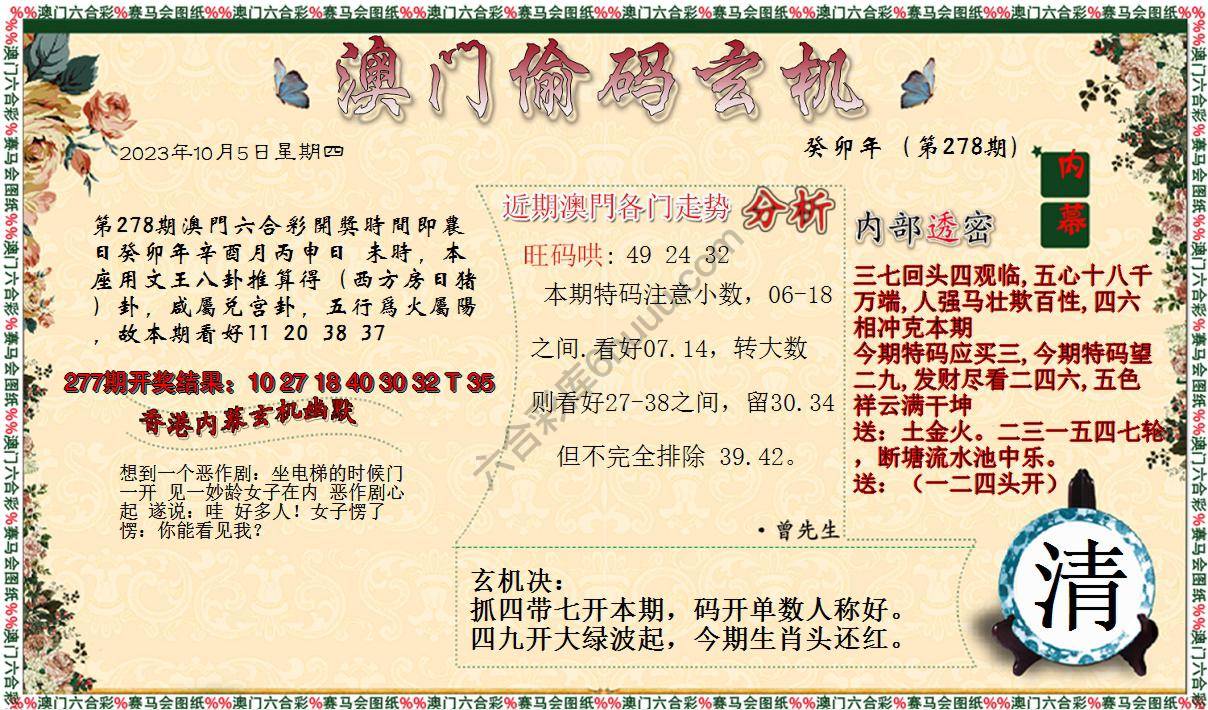 %%澳门六合彩%赛马会图纸%%澳门六合彩%赛马会图纸%%澳门六合彩%赛马会图纸%%澳门六合彩%赛马会图纸%%澳门六合彩%赛马会图纸%%澳门六合彩%赛马会图纸%%
澳门偷码玄机
2023年10月5日星期四
癸卯年（第278期）
内幕
第278期澳門六合彩開獎時間即農
日癸卯年辛酉月丙申日 未時，本
座用文王八卦推算得（西方房日猪
）卦，咸屬兑宫卦，五行爲火屬陽
，故本期看好11 20 38 37
277期开奖结果：10 27 18 40 30 32 T 35
香港内幕玄机幽默
想到一个恶作剧：坐电梯的时候门
一开 见一妙龄女子在内 恶作剧心
起 遂说：哇 好多人！女子愣了
愣：你能看见我？
近期澳門各门走势 分析
旺码哄: 49 24 32
本期特码注意小数，06-18
之间.看好07.14，转大数
则看好27-38之间，留30.34
但不完全排除 39.42。
·曾先生
内部透密
三七回头四观临,五心十八千
万端,人强马壮欺百性,四六
相冲克本期
今期特码应买三,今期特码望
二九,发财尽看二四六,五色
祥云满干坤
送：土金火。二三一五四七轮
，断塘流水池中乐。
送：（一二四头开）
玄机决：
抓四带七开本期，码开单数人称好。
四九开大绿波起，今期生肖头还红。
清
六合彩库6huuu.com
%%澳门六合彩%赛马会图纸%%澳门六合彩%赛马会图纸%%澳门六合彩%赛马会图纸%%澳门六合彩%赛马会图纸%%澳门六合彩%赛马会图纸%%澳门六合彩%赛马会图纸%%